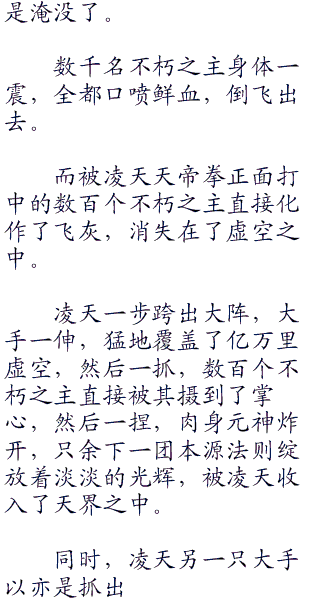 是淹没了。
数千名不朽之主身体一
震，全都口喷鲜血，倒飞出
去。
而被凌天天帝拳正面打
中的数百个不朽之主直接化
作了飞灰，消失在了虚空之
中。
凌天一步跨出大阵，大
手一伸，猛地覆盖了亿万里
虚空，然后一抓，数百个不
朽之主直接被其摄到了掌
心，然后一捏，肉身元神炸
开，只余下一团本源法则绽
放着淡淡的光辉，被凌天收
入了天界之中。
同时，凌天另一只大手
以亦是抓出